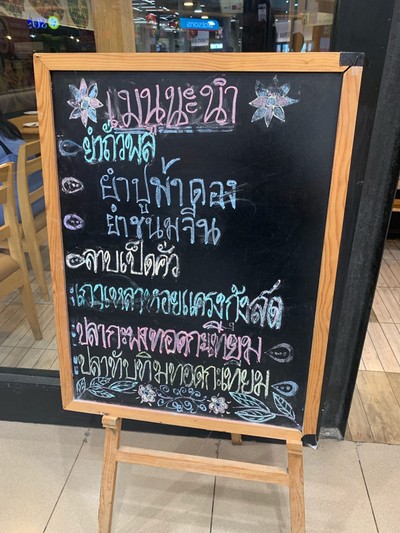 เมนูแนะนำ
ยำถั่วพลู
ยำปูม้าดอง
ยำขนมจีน
ลาบเป็ดคั่ว
เกาเหลาหอยแครงกุ้งสด
ปลากะพงทอดกระเทียม
ปลาทับทิมทอดกระเทียม